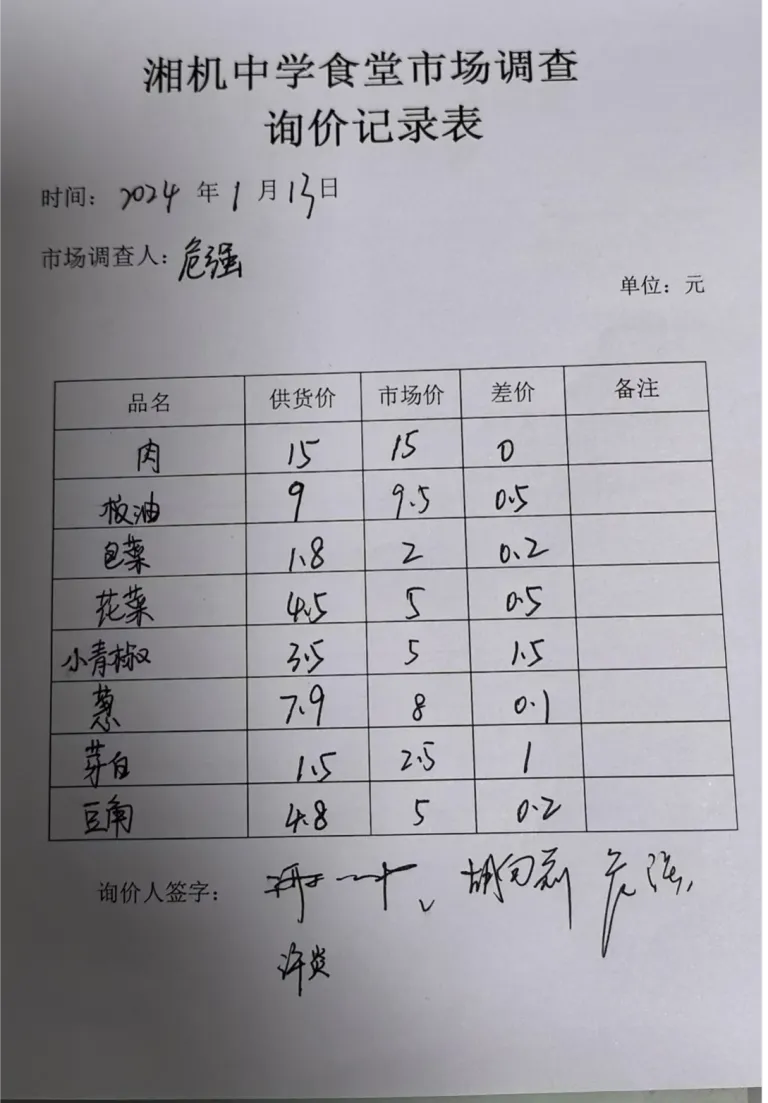 湘机中学食堂市场调查
询价记录表
时间：2024 年 1 月 13 日
市场调查人：危强
单位：元
品名 供货价 市场价 差价 备注
肉 15 15 0
板油 9 9.5 0.5
包菜 1.8 2 0.2
花菜 4.5 5 0.5
小青椒 3.5 5 1.5
葱 7.9 8 0.1
芽白 1.5 2.5 1
豆角 4.8 5 0.2
询价人签字： 危强